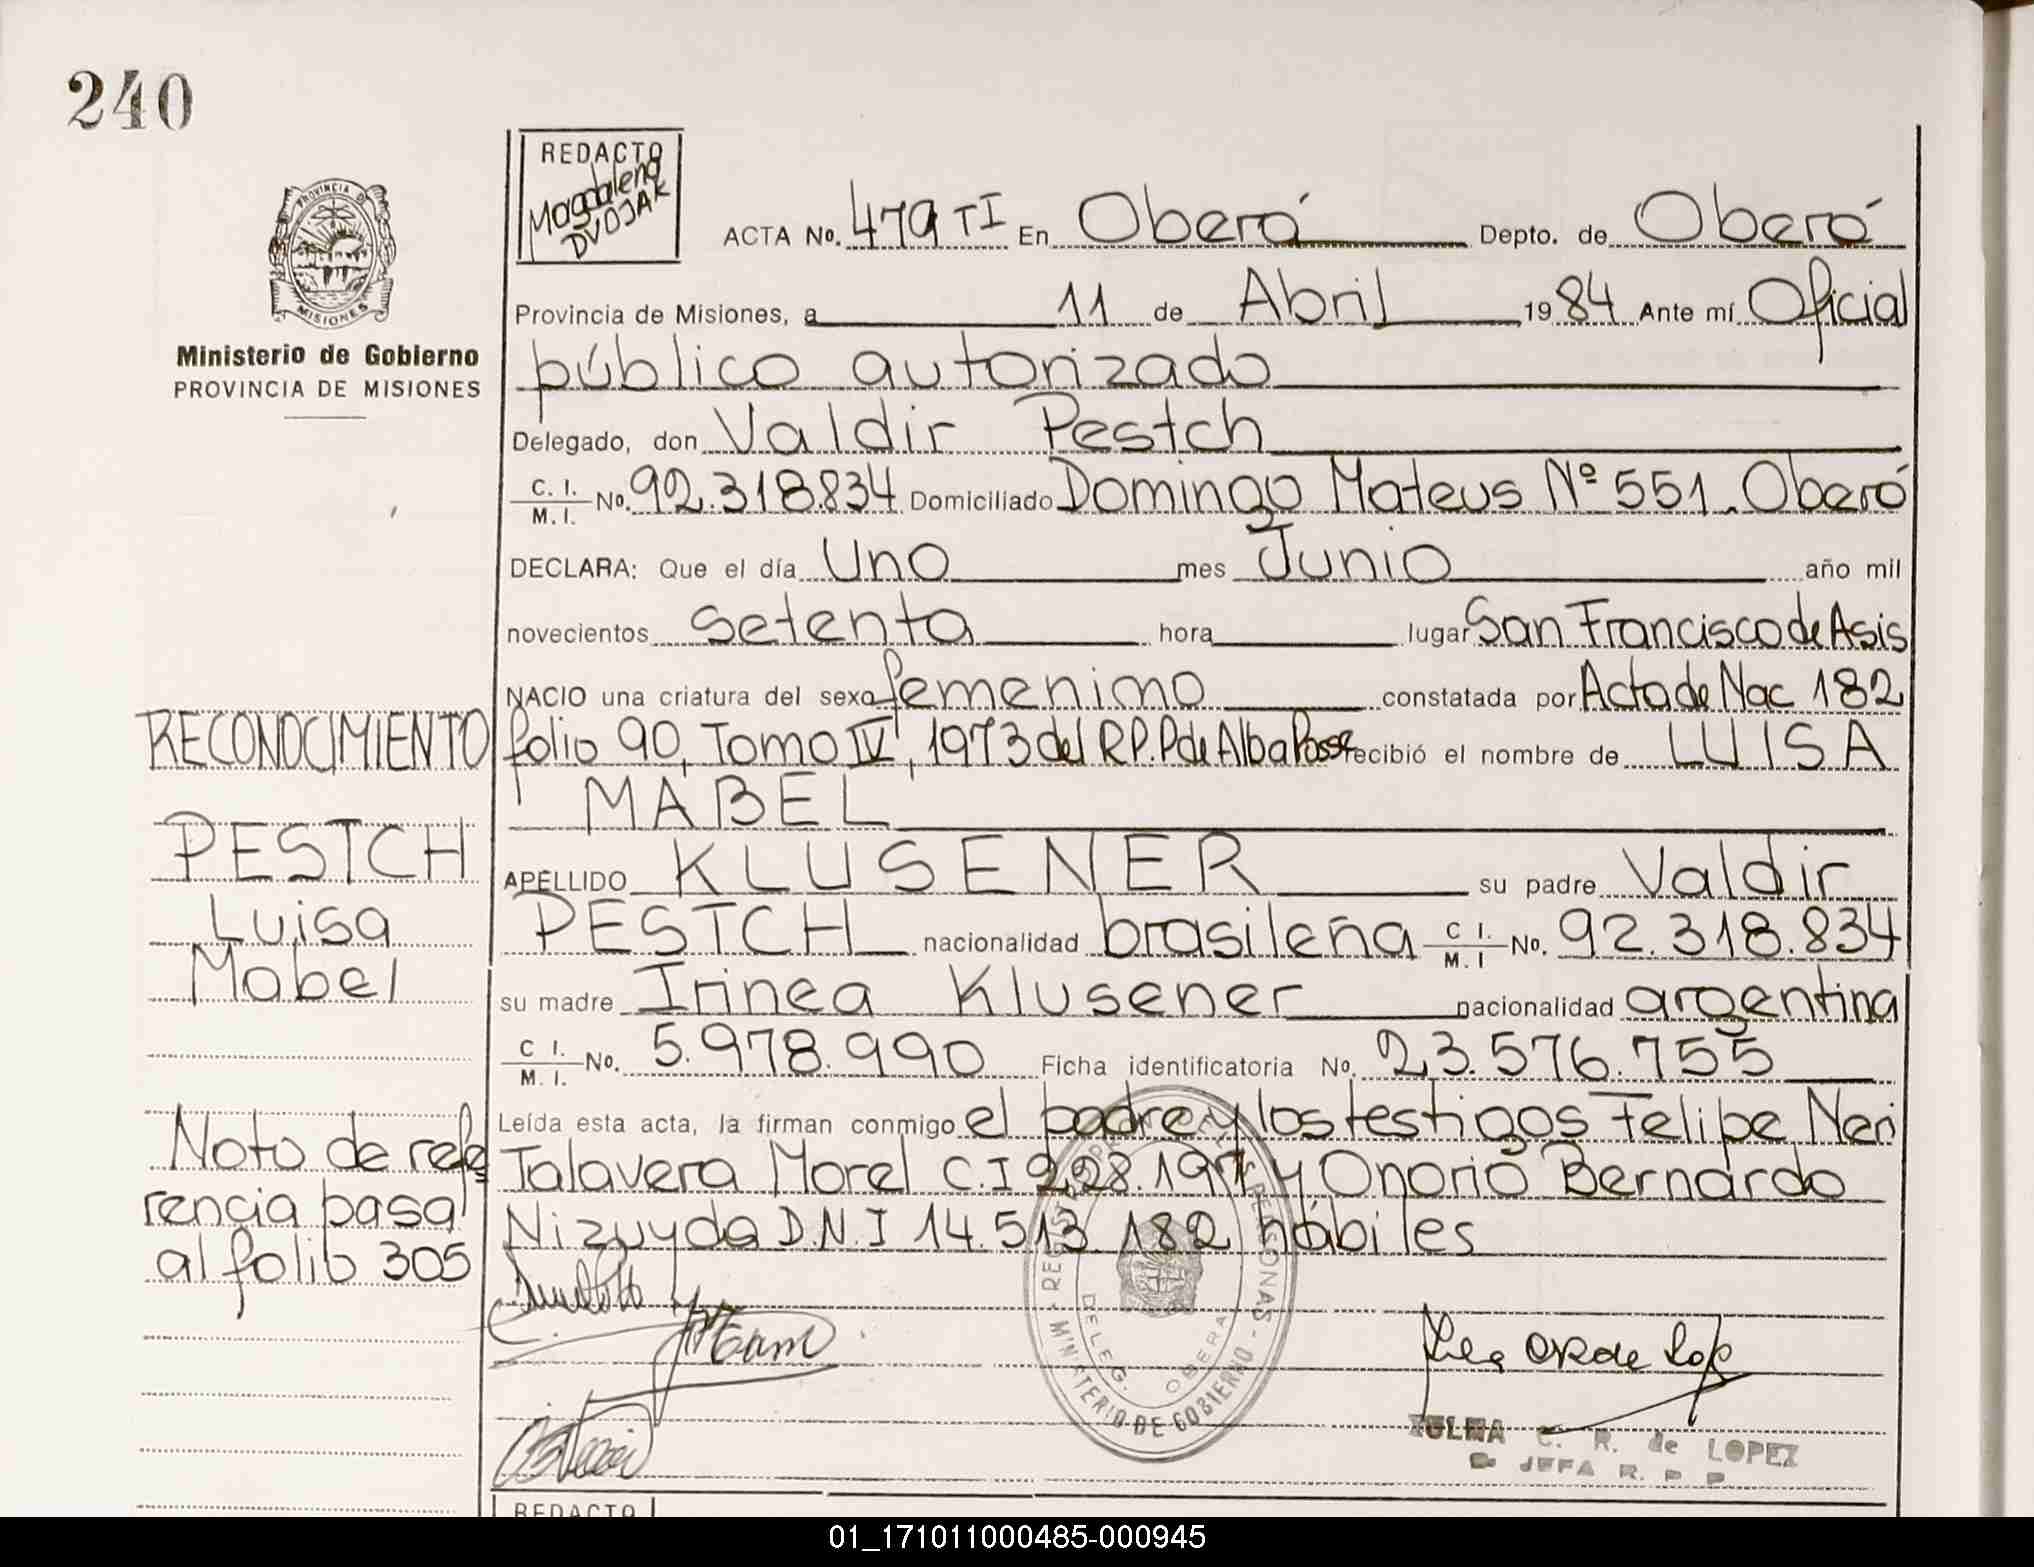 240
PROVINCIA DE
MISIONES
Ministerio de Gobierno
PROVINCIA DE MISIONES
REDACTO
Magdalena
DVOJAK
ACTA No. 479 TI En Oberá Depto. de Oberá
Provincia de Misiones, a 11 de Abril 1984 Ante mí Oficial
público autorizado
Delegado, don Valdir Pestch
C. I. / M. I. No. 92.318.834 Domiciliado Domingo Mateus Nº 551. Oberá
DECLARA: Que el día uno mes Junio año mil
novecientos setenta hora lugar San Francisco de Asis
NACIO una criatura del sexo femenino constatada por Acta de Nac 182
folio 90, Tomo IV, 1973 del R.P.P de Alba Posse recibió el nombre de LUISA
MABEL
APELLIDO KLUSENER su padre Valdir
PESTCH nacionalidad brasileña C I. / M. I No. 92.318.834
su madre Irinea Klusener nacionalidad argentina
C I. / M. I. No. 5.978.990 Ficha identificatoria No. 23.576.755
Leída esta acta, la firman conmigo el padre y los testigos Felipe Neri
Talavera Morel C.I 228.197 y Onorio Bernardo
Nizuyda D.N.I 14.513.182 hábiles
RECONOCIMIENTO
PESTCH
Luisa
Mabel
Nota de refe
rencia pasa
al folio 305
DELEG. OBERA
MINISTERIO DE GOBIERNO
PERSONAS
C. R. de LOPEZ
JEFA R. P. P.
REDACTO
01_171011000485-000945